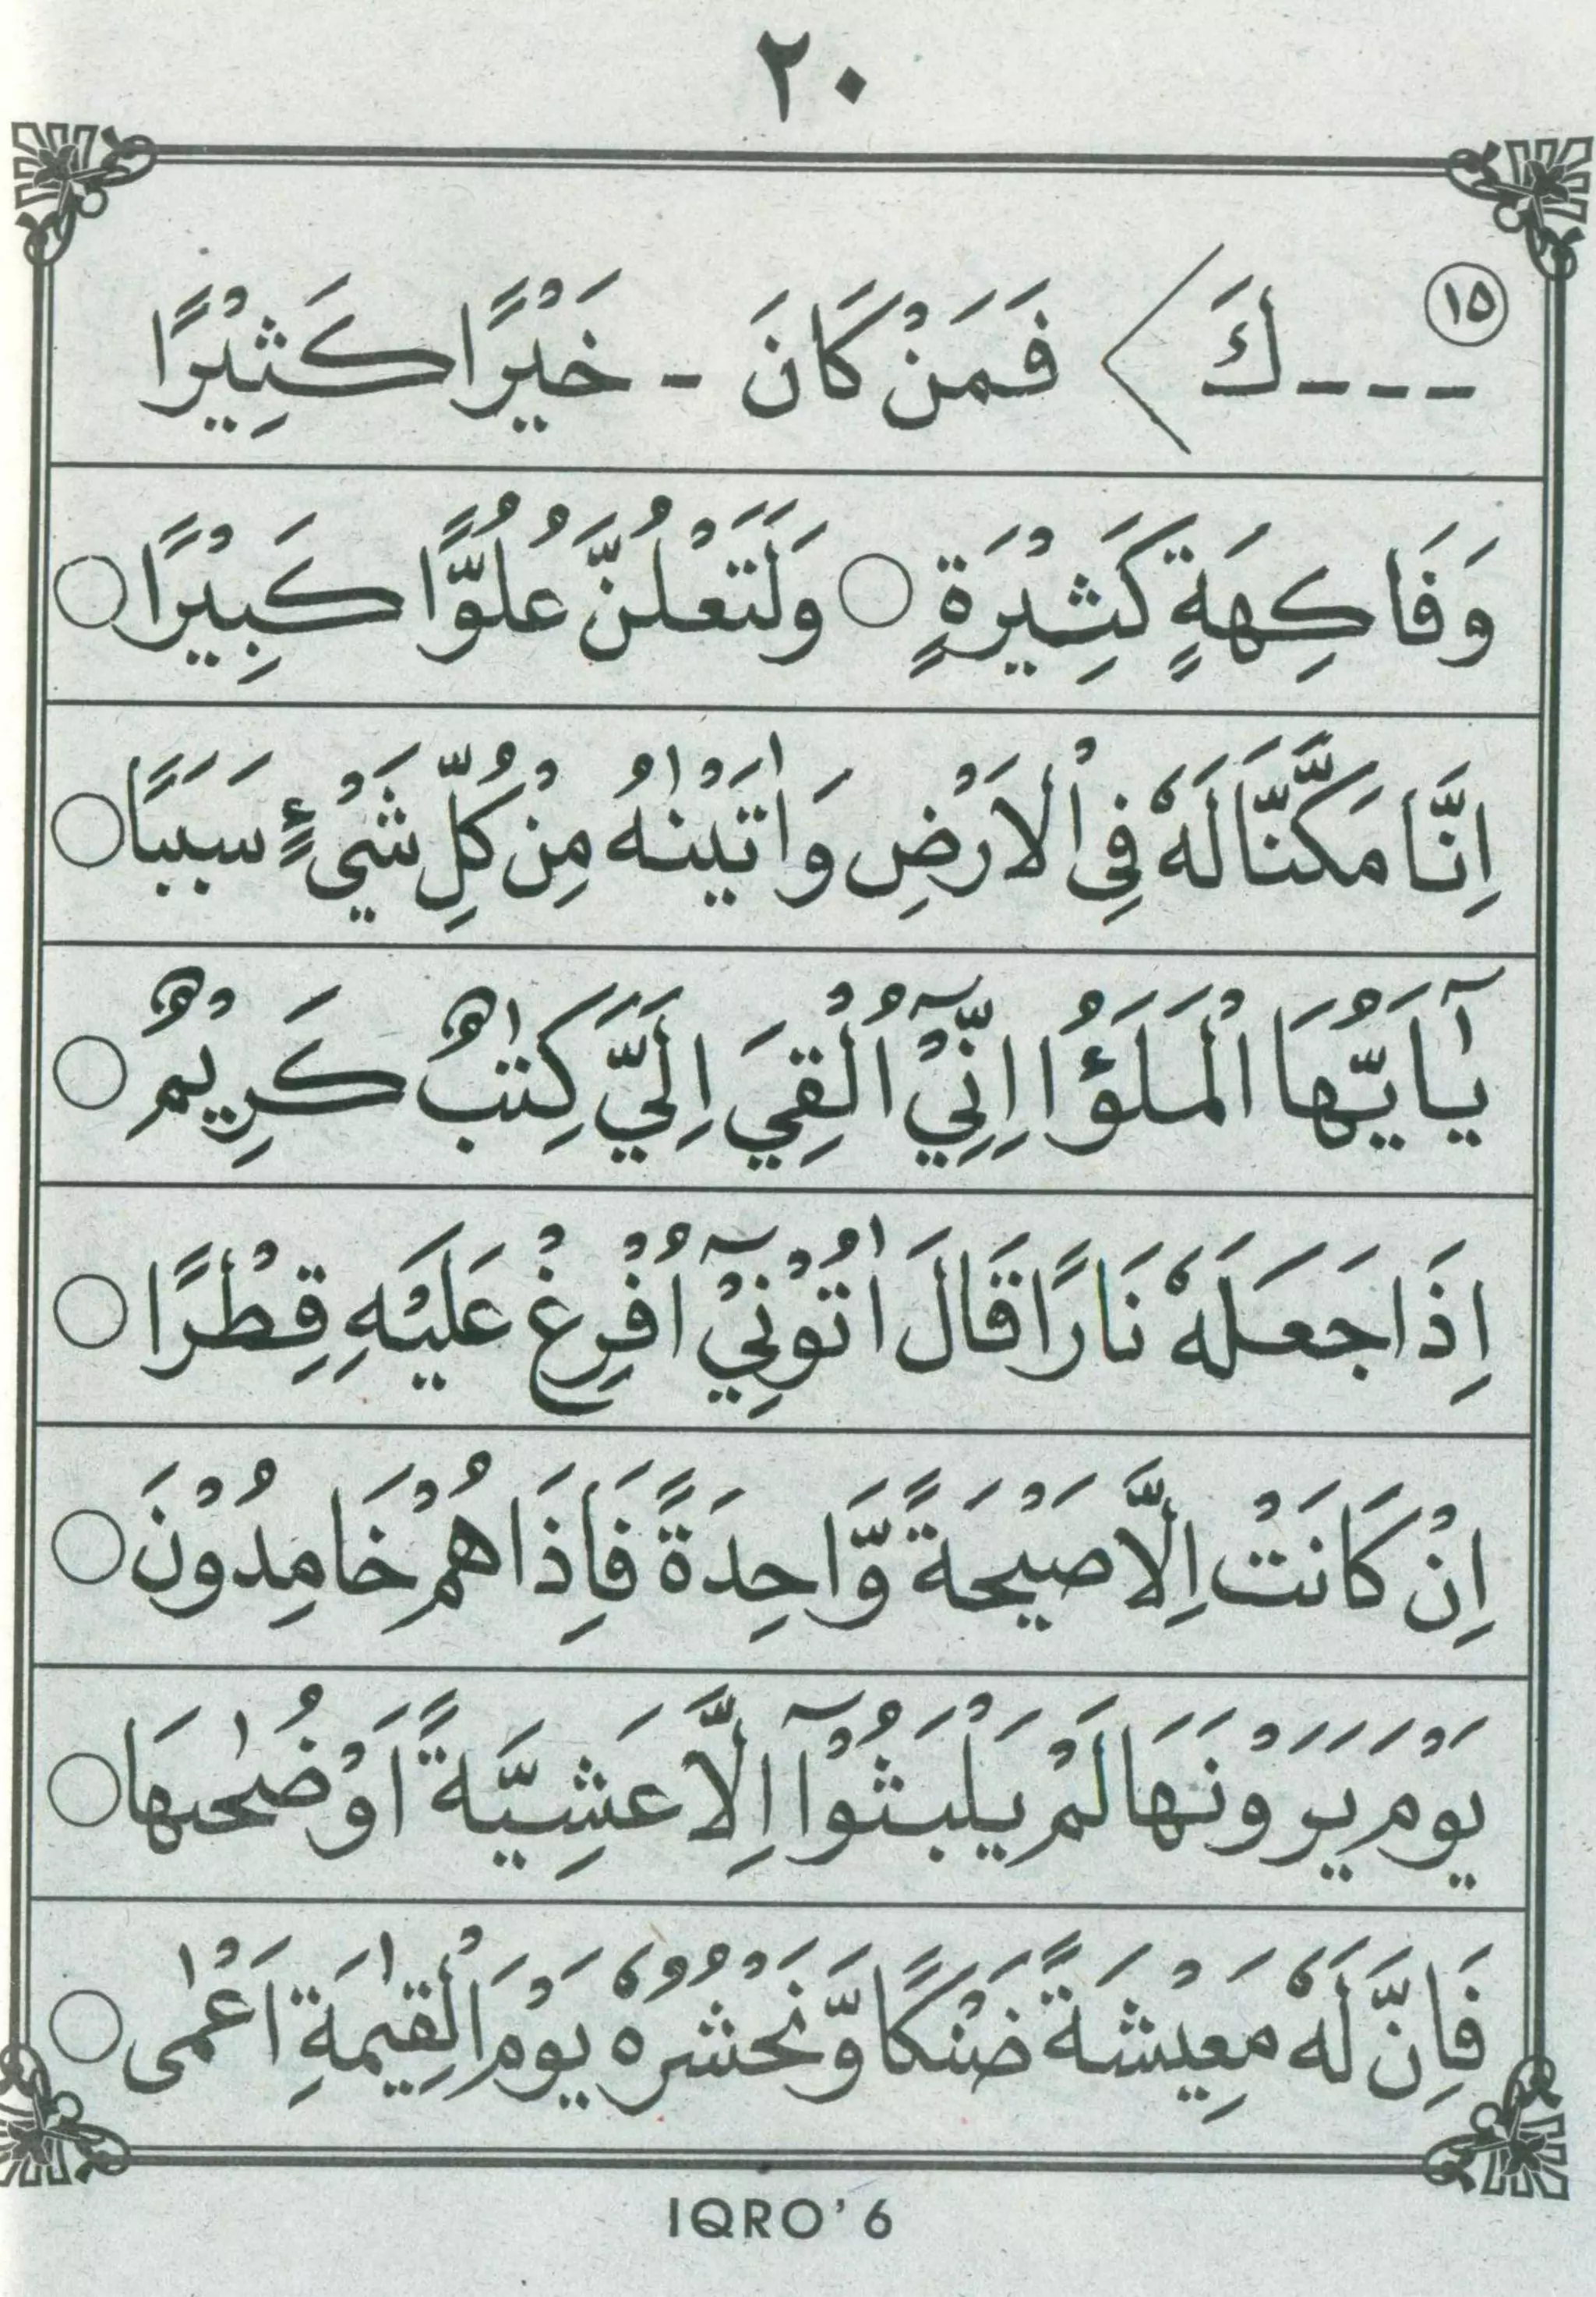 ٢٠
١٥
---كَ > فَمَنْ كَانَ - خَيْرًا كَثِيْرًا
وَفَاكِهَةٍ كَثِيْرَةٍ ○ وَلَتَعْلُنَّ عُلُوًّا كَبِيْرًا ○
اِنَّا مَكَّنَّا لَهٗ فِى الْاَرْضِ وَاٰتَيْنٰهُ مِنْ كُلِّ شَيْءٍ سَبَبًا ○
يٰٓاَيُّهَا الْمَلَؤُا اِنِّيْٓ اُلْقِيَ اِلَيَّ كِتٰبٌ كَرِيْمٌ ○
اِذَا جَعَلَهٗ نَارًا قَالَ اٰتُوْنِيْٓ اُفْرِغْ عَلَيْهِ قِطْرًا ○
اِنْ كَانَتْ اِلَّا صَيْحَةً وَّاحِدَةً فَاِذَا هُمْ خَامِدُوْنَ ○
يَوْمَ يَرَوْنَهَا لَمْ يَلْبَثُوْٓا اِلَّا عَشِيَّةً اَوْ ضُحٰىهَا ○
فَاِنَّ لَهٗ مَعِيْشَةً ضَنْكًا وَّنَحْشُرُهٗ يَوْمَ الْقِيٰمَةِ اَعْمٰى ○
IQRO' 6